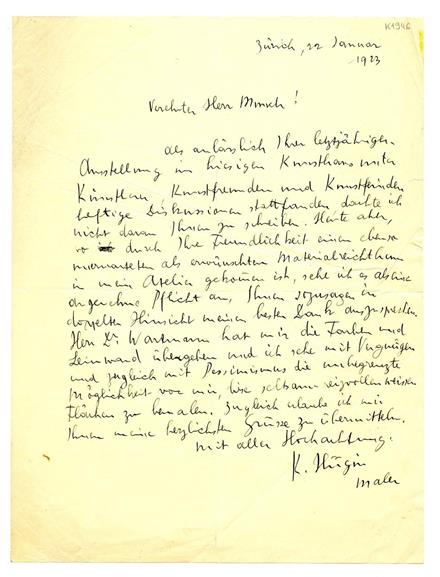 K 1946
Zürich, 22 Januar
1923
Verehrter Herr Munch!
als anlässlich Ihrer letztjährigen
Ausstellung im hiesigen Kunsthaus unter
Künstlern, Kunstfreunden und Kunstfeinden
heftige Diskussionen stattfanden dachte ich
nicht daran Ihnen zu schreiben. Heute aber,
wo durch Ihre Freundlichkeit einen ebenso
unerwarteten als erwünschten Materialreichthum
in mein Atelier gekommen ist, sehe ich es als eine
angenehme Pflicht an, Ihnen sozusagen in
doppelter Hinsicht meinen besten Dank auszusprechen.
Herr Dr. Wartmann hat mir die Farben und
Leinwand übergeben und ich sehe mit Vergnügen
und zugleich mit Pessimismus die unbegrenzte
Möglichkeit vor mir, diese seltsam reizvollen weissen
Flächen zu bemalen. Zugleich erlaube ich mir
Ihnen meine herzlichsten Grüsse zu übermitteln.
mit aller Hochachtung.
K. Hügin
Maler